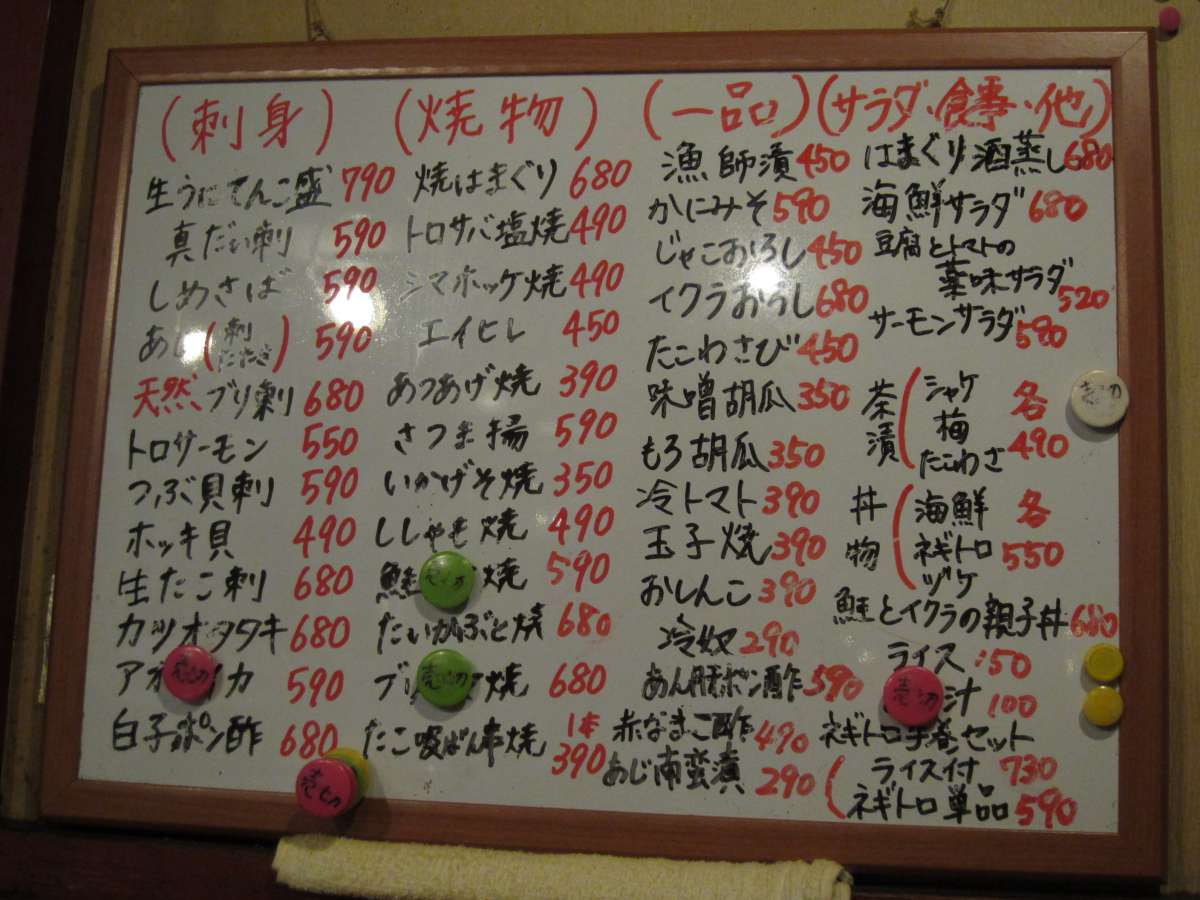 (刺身)
生うにてんこ盛 790
真だい刺 590
しめさば 590
あじ(刺 たたき) 590
天然ブリ刺 680
トロサーモン 550
つぶ貝刺 590
ホッキ貝 490
生たこ刺 680
カツオタタキ 680
アオ イカ 590
売切
白子ポン酢 680
売切
(焼物)
焼はまぐり 680
トロサバ塩焼 490
シマホッケ焼 490
エイヒレ 450
あつあげ焼 390
さつま揚 590
いかげそ焼 350
ししゃも焼 490
鮭 焼 590
売切
たいかぶと焼 680
ブリ 焼 680
売切
たこ吸ばん串焼 1本 390
(一品)
漁師漬 450
かにみそ 590
じゃこおろし 450
イクラおろし 680
たこわさび 450
味噌胡瓜 350
もろ胡瓜 350
冷トマト 390
玉子焼 390
おしんこ 390
冷奴 290
あん肝ポン酢 590
赤なまこ酢 490
あじ南蛮漬 290
(サラダ・食事・他)
はまぐり酒蒸し 680
海鮮サラダ 680
豆腐とトマトの
薬味サラダ 520
サーモンサラダ 590
茶漬(シャケ 梅 たこわさ 各490
売切
丼物(海鮮 ネギトロ ヅケ 各550
鮭とイクラの親子丼 680
ライス :50
汁 100
売切
ネギトロ手巻セット
(ライス付 730
ネギトロ単品 590